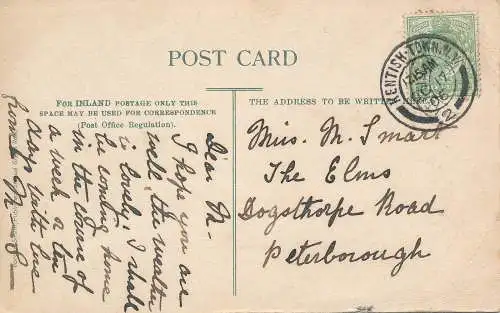 POST CARD
FOR INLAND POSTAGE ONLY THIS
SPACE MAY BE USED FOR CORRESPONDENCE
(Post Office Regulation).
THE ADDRESS TO BE WRITTEN
KENTISH-TOWN.N.W.
7.15AM
17
06
2
Miss. M. Smart
The Elms
Dogsthorpe Road
Peterborough
Dear M-
I hope you are
well, the weather
is lovely; I shall
be coming home
in the course of
a week or ten
days with love
from M S